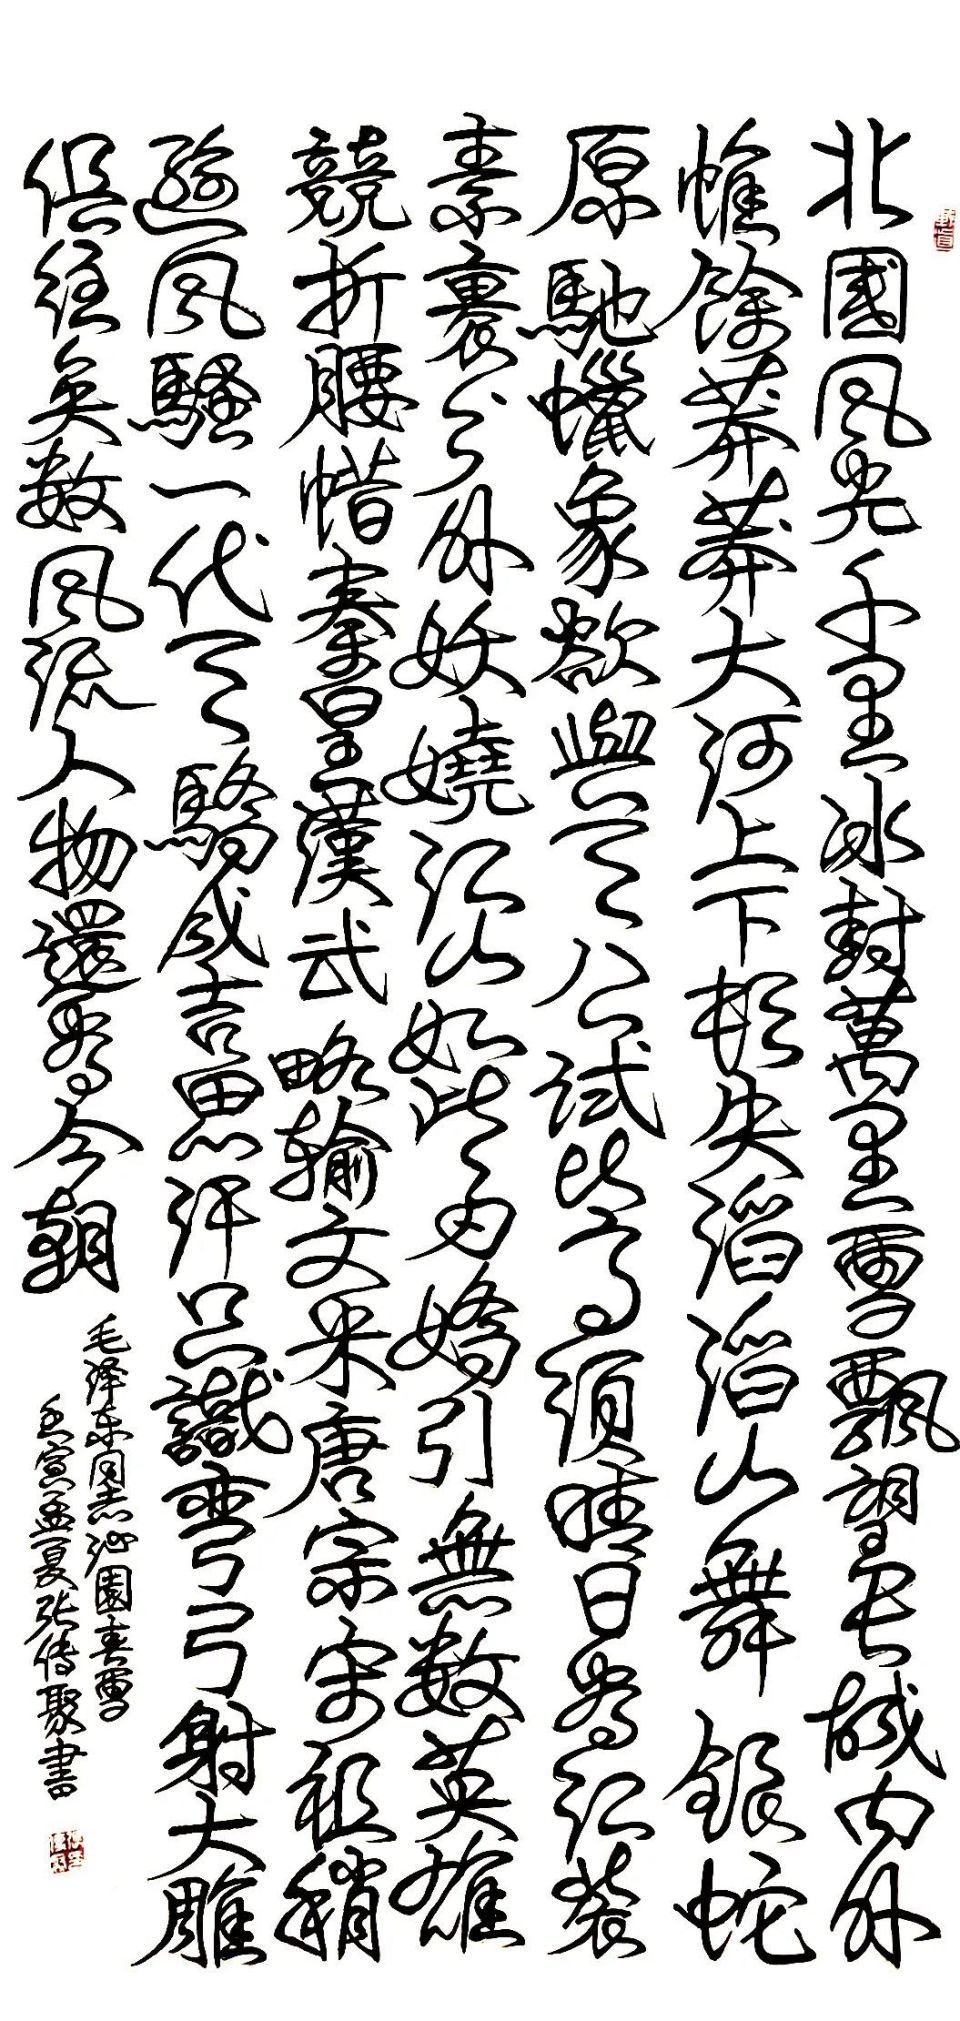 北國風光千里冰封萬里雪飄望長城內外
惟餘莽莽大河上下頓失滔滔山舞銀蛇
原馳蠟象欲與天公試比高須晴日看紅裝
素裹分外妖嬈江山如此多嬌引無數英雄
競折腰惜秦皇漢武略輸文采唐宗宋祖稍
遜風騷一代天驕成吉思汗只識彎弓射大雕
俱往矣數風流人物還看今朝
毛泽东同志沁園春雪
壬寅孟夏张传聚書